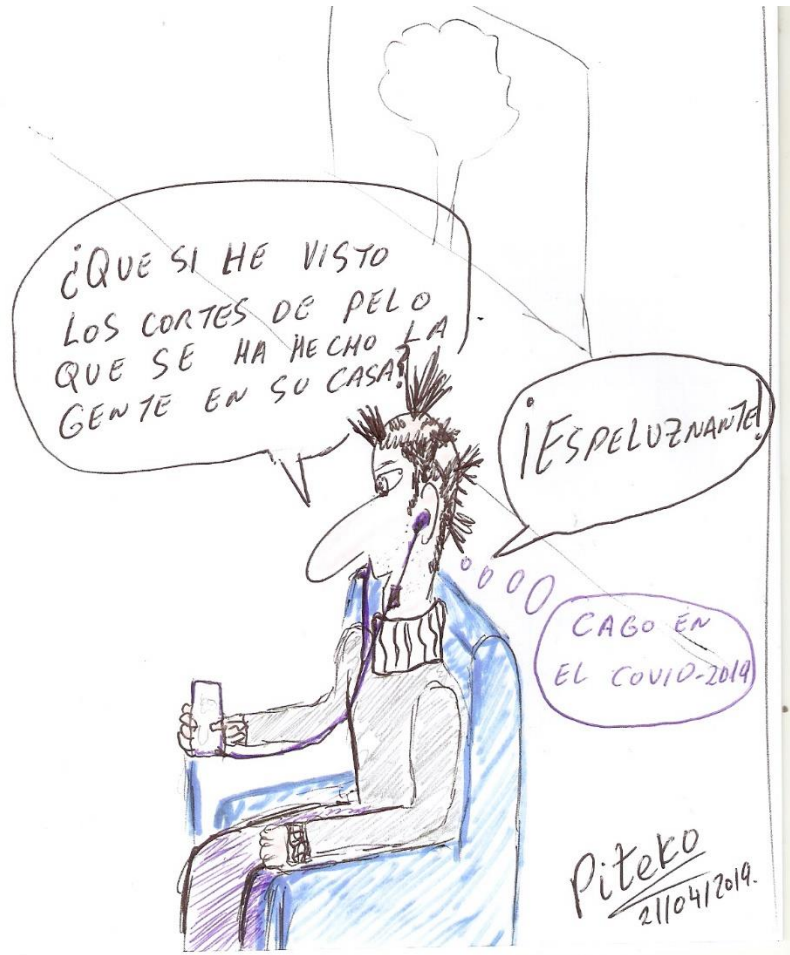 ¿QUE SI HE VISTO
LOS CORTES DE PELO
QUE SE HA HECHO LA
GENTE EN SU CASA?
¡ESPELUZNANTE!
CAGO EN
EL COVID-2019
Piteko
21/04/2019.